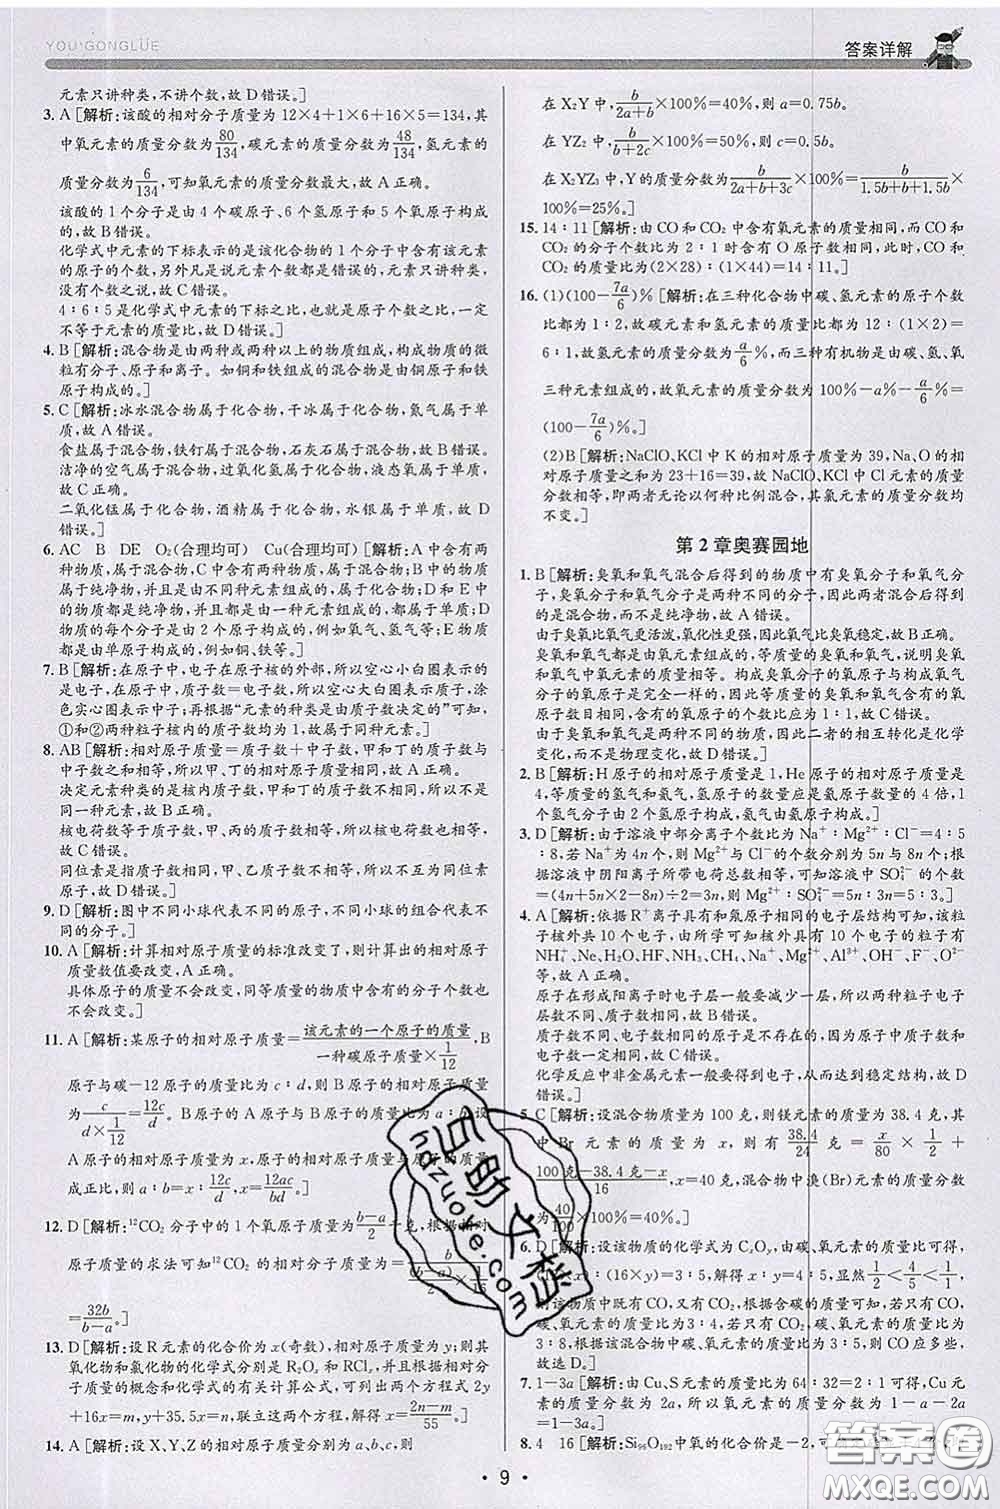 YOU GONGLÜE
答案详解
元素只讲种类,不讲个数,故 D 错误。]
3. A [解析:该酸的相对分子质量为 12×4+1×6+16×5=134,其
中氧元素的质量分数为80/134,碳元素的质量分数为48/134,氢元素的
质量分数为6/134,可知氧元素的质量分数最大,故 A 正确。
该酸的 1 个分子是由 4 个碳原子、6 个氢原子和 5 个氧原子构成
的,故 B 错误。
化学式中元素的下标表示的是该化合物的 1 个分子中含有该元
素的原子的个数,另外凡是说元素个数都是错误的,元素只讲种类,
没有个数之说,故 C 错误。
4∶6∶5 是化学式中元素的下标之比,也就是原子个数之比,一定
不等于元素的质量比,故 D 错误。]
4. B [解析:混合物是由两种或两种以上的物质组成,构成物质的微
粒有分子、原子和离子。如铜和铁组成的混合物是由铜原子和铁
原子构成的。]
5. C [解析:冰水混合物属于化合物,干冰属于化合物,氮气属于单
质,故 A 错误。
食盐属于混合物,铁钉属于混合物,石灰石属于混合物,故 B 错误。
洁净的空气属于混合物,过氧化氢属于化合物,氦气属于单质,
故 C 正确。
二氧化锰属于化合物,酒精属于化合物,水银属于单质,故 D
错误。]
6. AC B DE O₂(合理均可) Cu(合理均可) [解析:A 中含有两
种物质,属于混合物;B 中含有一种化合物,属于化合物;C 中含有
两种物质,是由不同种元素组成的,属于混合物;D 和 E 中含有一
种物质,都是纯净物,且是由同种元素组成的,都属于单质;D
物质的每个分子是由 2 个原子构成的,例如氧气、氢气等;E 中物
质是由原子构成的,例如铜、铁等。]
7. B [解析:在原子中,电子在原子核的外部,所以空心小白圈表示的
是电子;质子数=电子数,所以空心大白圈表示的是质子,涂
色实心圆表示中子;再根据“元素的种类是由质子数决定的”可知,
①和②两种粒子核内的质子数均为 1,故属于同种元素。]
8. AB [解析:相对原子质量=质子数+中子数,甲和丁的质子数与
中子数之和相同,所以甲、丁的相对原子质量相同,故 A 正确。
决定元素种类的是核内质子数,甲和丁的质子数不相等,所以不属于
同一种元素,故 B 正确。
核电荷数等于质子数,甲、丙的质子数相等,所以核电荷数也相等,
故 C 错误。
同位素是指质子数相同,甲、乙质子数不相等,所以不互为同位素
原子,故 D 错误。]
9. D [解析:图中不同小球代表不同的原子,不同小球的组合代表不
同的分子。]
10. A [解析:计算相对原子质量的标准改变了,则计算出的相对原子
质量数值要改变,A 正确。
具体原子的质量不会改变,同等质量的物质中含有的分子个数也
不会改变。]
11. A [解析:某原子的相对原子质量=该元素的一个原子的质量/(一种碳原子质量×1/12),B
原子与碳-12 原子的质量之比为 c∶d,则 B 的相对原子质量
为c/(d×1/12)=12c/d。B 原子与 A 原子的质量之比为 a∶b,设
A 原子的相对原子质量为 x,原子的质量比与相对原子质量
成正比,则 a∶b=x∶12c/d,x=12ac/bd。]
12. D [解析:¹²CO₂ 分子中的 1 个氧原子质量为(b-a)/2千克,根据相对
原子质量的求法可知¹²CO₂ 的相对分子质量为b/((b-a)/2×1/16)
=32b/(b-a)。]
13. D [解析:设 R 元素的化合价为 x(奇数),相对原子质量为 y;则其
氧化物和氯化物的化学式分别是 R₂Oₓ 和 RClₓ,并且利用相对分
子质量的概念和化学式的有关计算公式,可以列出两个方程式 2y
+16x=m,y+35.5x=n,联立这两个方程,则 x=(2n-m)/55。]
14. A [解析:设 X、Y、Z 的相对原子质量分别为 a、b、c,则
在 X₂Y 中,b/(2a+b)×100%=40%,则 a=0.75b。
在 YZ₂ 中,b/(b+2c)×100%=50%,则 c=0.5b。
在 X₂YZ₃ 中,Y 的质量分数为b/(2a+b+3c)×100%=b/(1.5b+b+1.5b)×
100%=25%。]
15. 14∶11 [解析:由 CO 和 CO₂ 中含有氧元素的质量相同,而 CO 和
CO₂ 的分子个数比为 2∶1 时含有 O 原子个数相同,此时,CO 与
CO₂ 的质量比为(2×28)∶(1×44)=14∶11。]
16. (1)(100-7a/6)% [解析:在三种化合物中碳、氢元素的原子个数
比都为 1∶2,故碳元素和氢元素的质量比都为 12∶(1×2)=
6∶1,故氢元素的质量分数为a/6%,而三种有机物是由碳、氢、氧
三种元素组成的,故氧元素的质量分数为 100%-a%-a/6%=
(100-7a/6)%。]
(2)B [解析:NaClO、KCl 中 K 的相对原子质量为 39,Na、O 的相
对原子质量之和为 23+16=39,故 NaClO、KCl 中 Cl 元素的质量
分数相等,即两者无论以何种比例混合,其氯元素的质量分数均
不变。]
第 2 章奥赛园地
1. B [解析:臭氧和氧气混合后得到的物质中有臭氧分子和氧气分
子,臭氧分子和氧气分子是两种不同的分子,因此两者混合得到
的是混合物,而不是纯净物,故 A 错误。
由于臭氧比氧气更活泼,氧化性更强,因此氧气比臭氧稳定,故 B 正确。
臭氧和氧气都是由氧元素组成的,等质量的臭氧和氧气,说明臭氧
和氧气中氧元素的质量是相等的。构成臭氧分子与构成氧气分
子的氧原子是完全一样的,因此等质量的臭氧和氧气含有的氧
原子数目相同,含有的氧原子的个数之比应为 1∶1,故 C 错误。
由于臭氧和氧气是两种不同的物质,因此二者的相互转化是化学
变化,而不是物理变化,故 D 错误。]
2. B [解析:H 原子的相对原子质量是 1,He 原子的相对原子质量是
4,等质量的氢气和氦气,氢原子的数量应是氦原子数量的 4 倍,1
个氢气分子由两个氢原子构成,氦气由氦原子构成。]
3. D [解析:由于溶液中部分离子个数比为 Na⁺∶Mg²⁺∶Cl⁻=4∶5
∶8,若 Na⁺为 4n,则 Mg²⁺与 Cl⁻的个数分别为 5n 与 8n 个;根
据溶液中阴阳离子所带电荷总数相等,可知溶液中 SO₄²⁻的个数为
(4n+5n×2-8n)÷2=3n,则 Mg²⁺∶SO₄²⁻=5n∶3n=5∶3。]
4. A [解析:依据 R⁺离子具有和氖原子相同的电子层结构可知,该粒
子核外共有 10 个电子,由初中化学常见的 10 个电子的粒子有
NH₄⁺、Ne、H₂O、HF、NH₃、CH₄、Na⁺、Mg²⁺、Al³⁺、OH⁻、F⁻、O²⁻,
故 A 正确。
原子在形成阳离子时电子层一般要减少,所以两种粒子原子的电
子层不同,故 B 错误。
质子数不同、电子数相同是两种不同元素的原子,由于质子数和
电子数不可能都相同,故 C 错误。
化学反应中非金属元素一般要得到电子,形成阴离子,故 D
错误。]
5. C [解析:设混合物质量为 100 克,则镁元素的质量为 38.4 克,
其中 Br 元素的质量为 x,则有38.4/24克=x/80×1/2+
(100 克-38.4 克-x)/16,x=40 克,混合物中溴(Br)元素的质量分数
为40/100×100%=40%。]
6. D [解析:设该物质的化学式为 CₓOᵧ,由碳、氧元素的质量比可得,
(12×x)∶(16×y)=3∶5,解得 x∶y=4∶5,显然1/2<4/5<1/1,
则该物质中既有 CO,又有 CO₂,根据含碳的物质中,
若只有 CO₂,则碳、氧元素的质量比为 3∶8,若只有 CO,则碳、氧元素的质量比为
3∶4,所以该混合物中碳、氧元素的质量比大于 3∶8,小于 3∶4,
故选 D。]
7. 1-3a [解析:由 Cu、S 元素的质量比为 64∶32=2∶1 可知,Cu
元素的质量分数为 2a,所以氧元素的质量分数为 1-a-2a=
1-3a。]
8. 4 16 [解析:Si₉₆O₁₉₂ 中氧的化合价是-2,可
百助文档
hdzuoye.com
答案圈
MXQE.COM
• 9 •